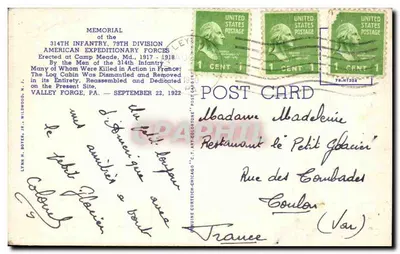 MEMORIAL
of the
314TH INFANTRY, 79TH DIVISION
AMERICAN EXPEDITIONARY FORCES
Erected at Camp Meade, Md., 1917 - 1918
By the Men of the 314th Infantry
Many of Whom Were Killed in Action in France
The Log Cabin Was Dismantled and Removed
in its Entirety, Reassembled and Dedicated
on the Present Site,
VALLEY FORGE, PA. — SEPTEMBER 22, 1922
UNITED STATES POSTAGE
1 CENT 1
UNITED STATES POSTAGE
1 CENT 1
UNITED STATES POSTAGE
1 CENT 1
POST CARD
Un petit bonjour
d'Amérique avec
mes amitiés a tout
le petit Glacier
Colonel
Madame Madeleine
Restaurant le Petit Glacier
Rue des Combades
Toulon
(Var)
France